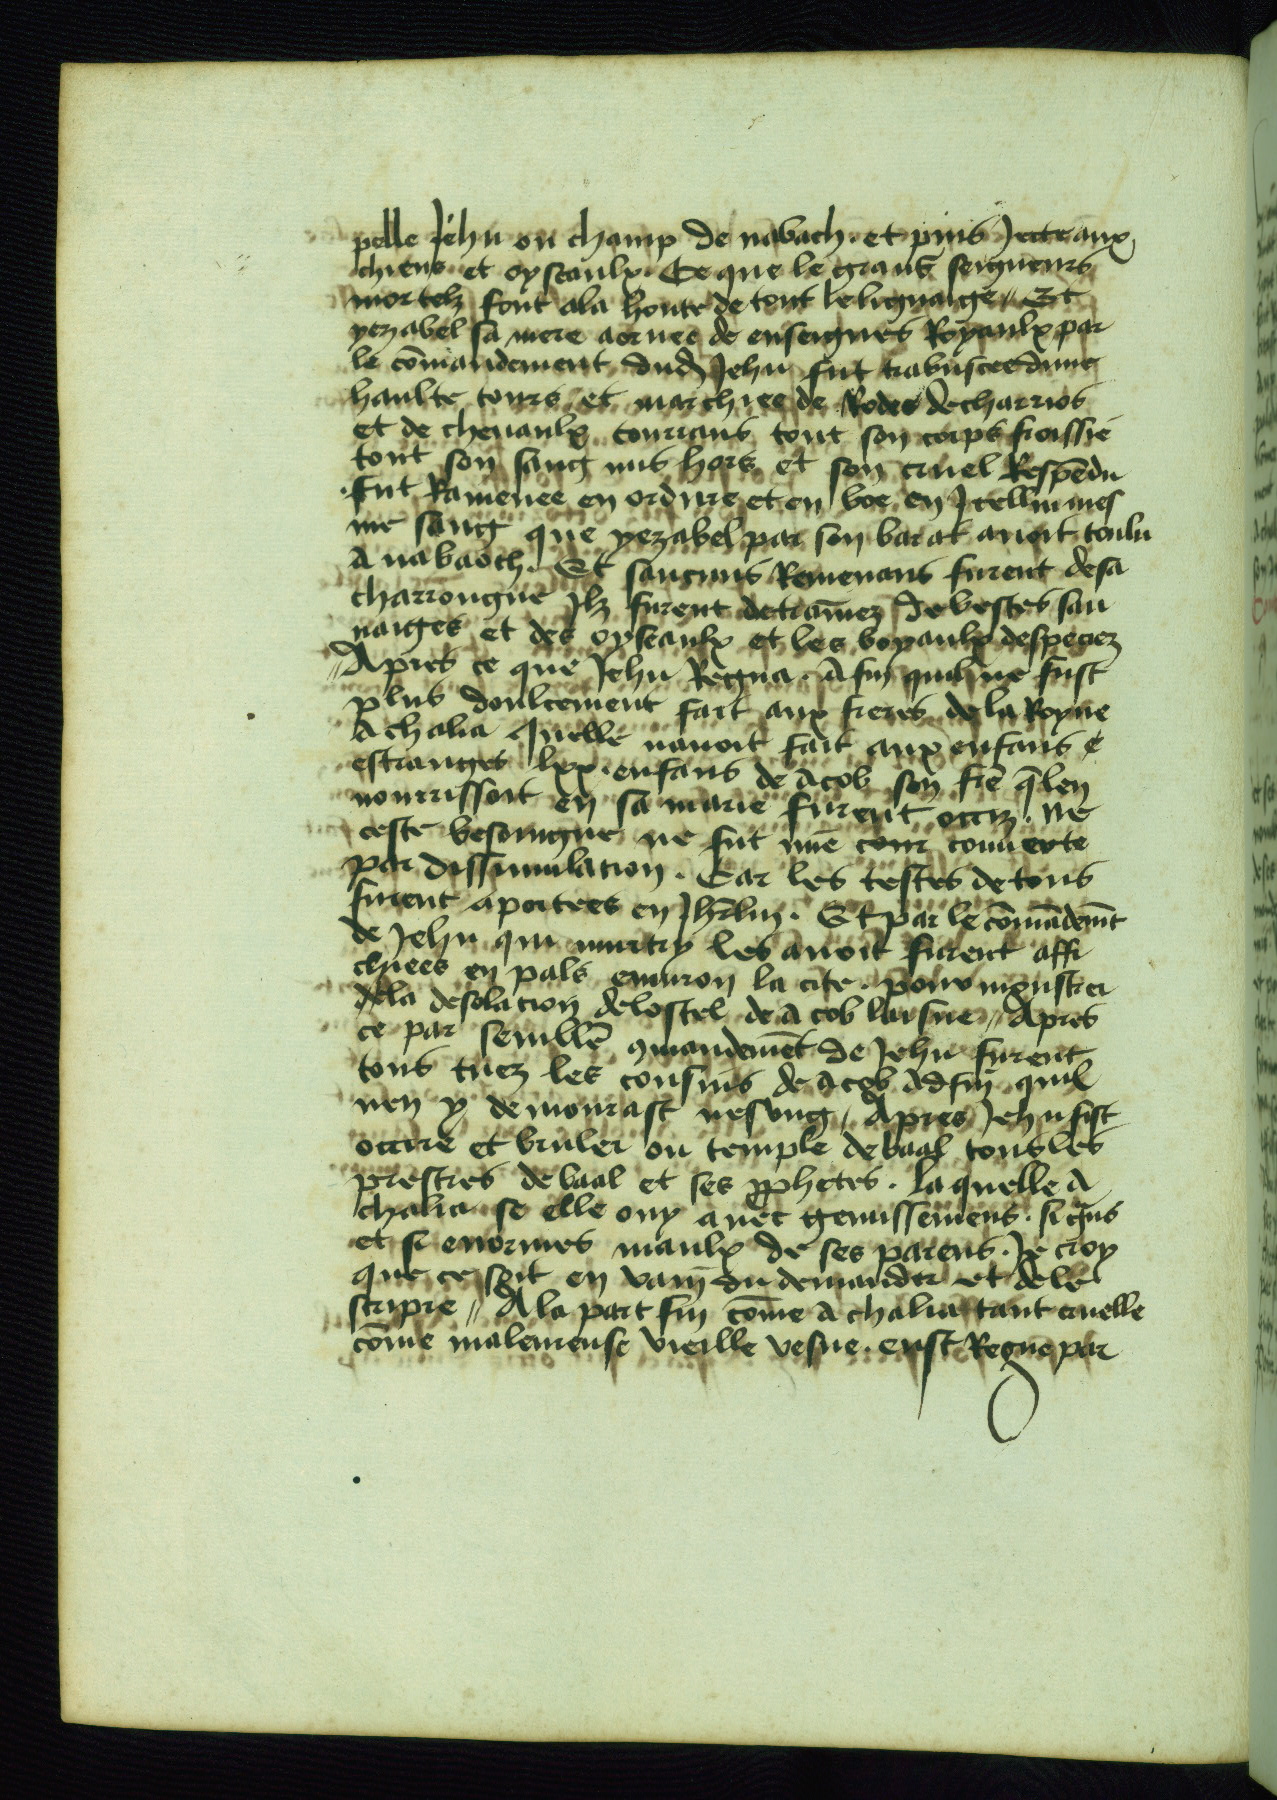 pelle Jehu ou champ de nabach. et puis Jecte aux
chiens et oyseaulx. Ce que le grans seigneurs
mortelz font ala honte de tout le lignaige // Et
yezabel sa mere aornee de enseignes Royaulx par
le cōmandement dud Jehu fut trabuscee dune
haulte tours et marchiee de Rodes de charrios
et de chevaulx courrans tout son corps froissie
tout son sang mis hors et son cruel Respēdu
fut Ramenee en ordure et en boe en Jcelluimes
me sang que yezabel par son barat avoit toulu
a nabaoch. Et saucuns Remenans furent desa
charrongne Jlz furent detrainez de bestes sau
vaiges et des oyseaulx et les boyaulx despeciez
// Apres ce que Jehu Regna. Afin quil ne fust
plus doulcement fait aux freres de la Royne
Achalia quelle navoit fait aux enfans
estranges lxx. enfans de Acob son frē q̄ len
nourrissoit en samarie furent occiz. Ne
ceste besoingne ne fut mie couverte
par dissimulacion. Car les testes de tous
furent aportees en Jhrl̄m. Et par le cōmādemt̄
de Jehu qui murtry les avoit furent affi
chiees en pals environ la cite. pour monstrer
de la desolacion de lostel de Acob laisne // Apres
ce par semblē 9mandemēt de Jehu furent
tous tuez les cousins de Acob Adfin quil
nen y demourast nesung // Apres Jehu fist
occire et bruler ou temple de baal tous les
prestres de baal et ses pphetes. laquelle A
chalia se elle ouy avec gemissemens. si grās
et si enormes maulx de ses parens. Je croy
que ce soit en vain du demander et de le
scripre // A la part fin cōme Achalia tant cruelle
cōme malereuse vieille vesue. eust Regne par